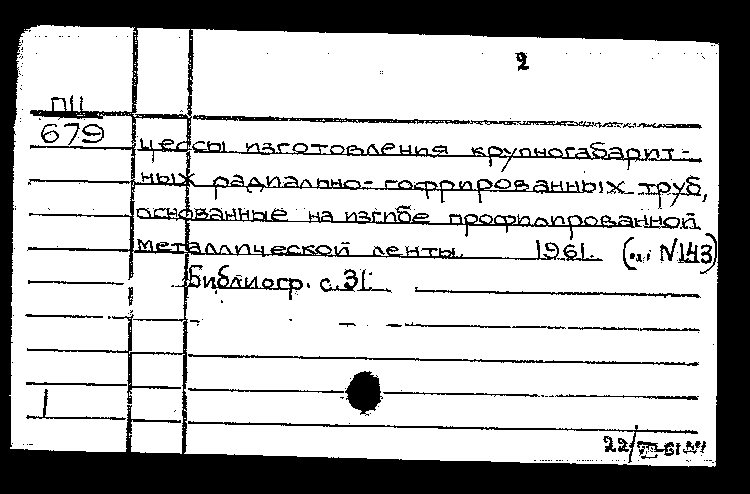 2
П11
679
цессы изготовления крупногабарит-
ных радиально-гофрированных труб,
основанные на изгибе профилированной
металлической ленты. 1961. ( № 143)
Библиогр. с. 31.
1
22/VIII-61